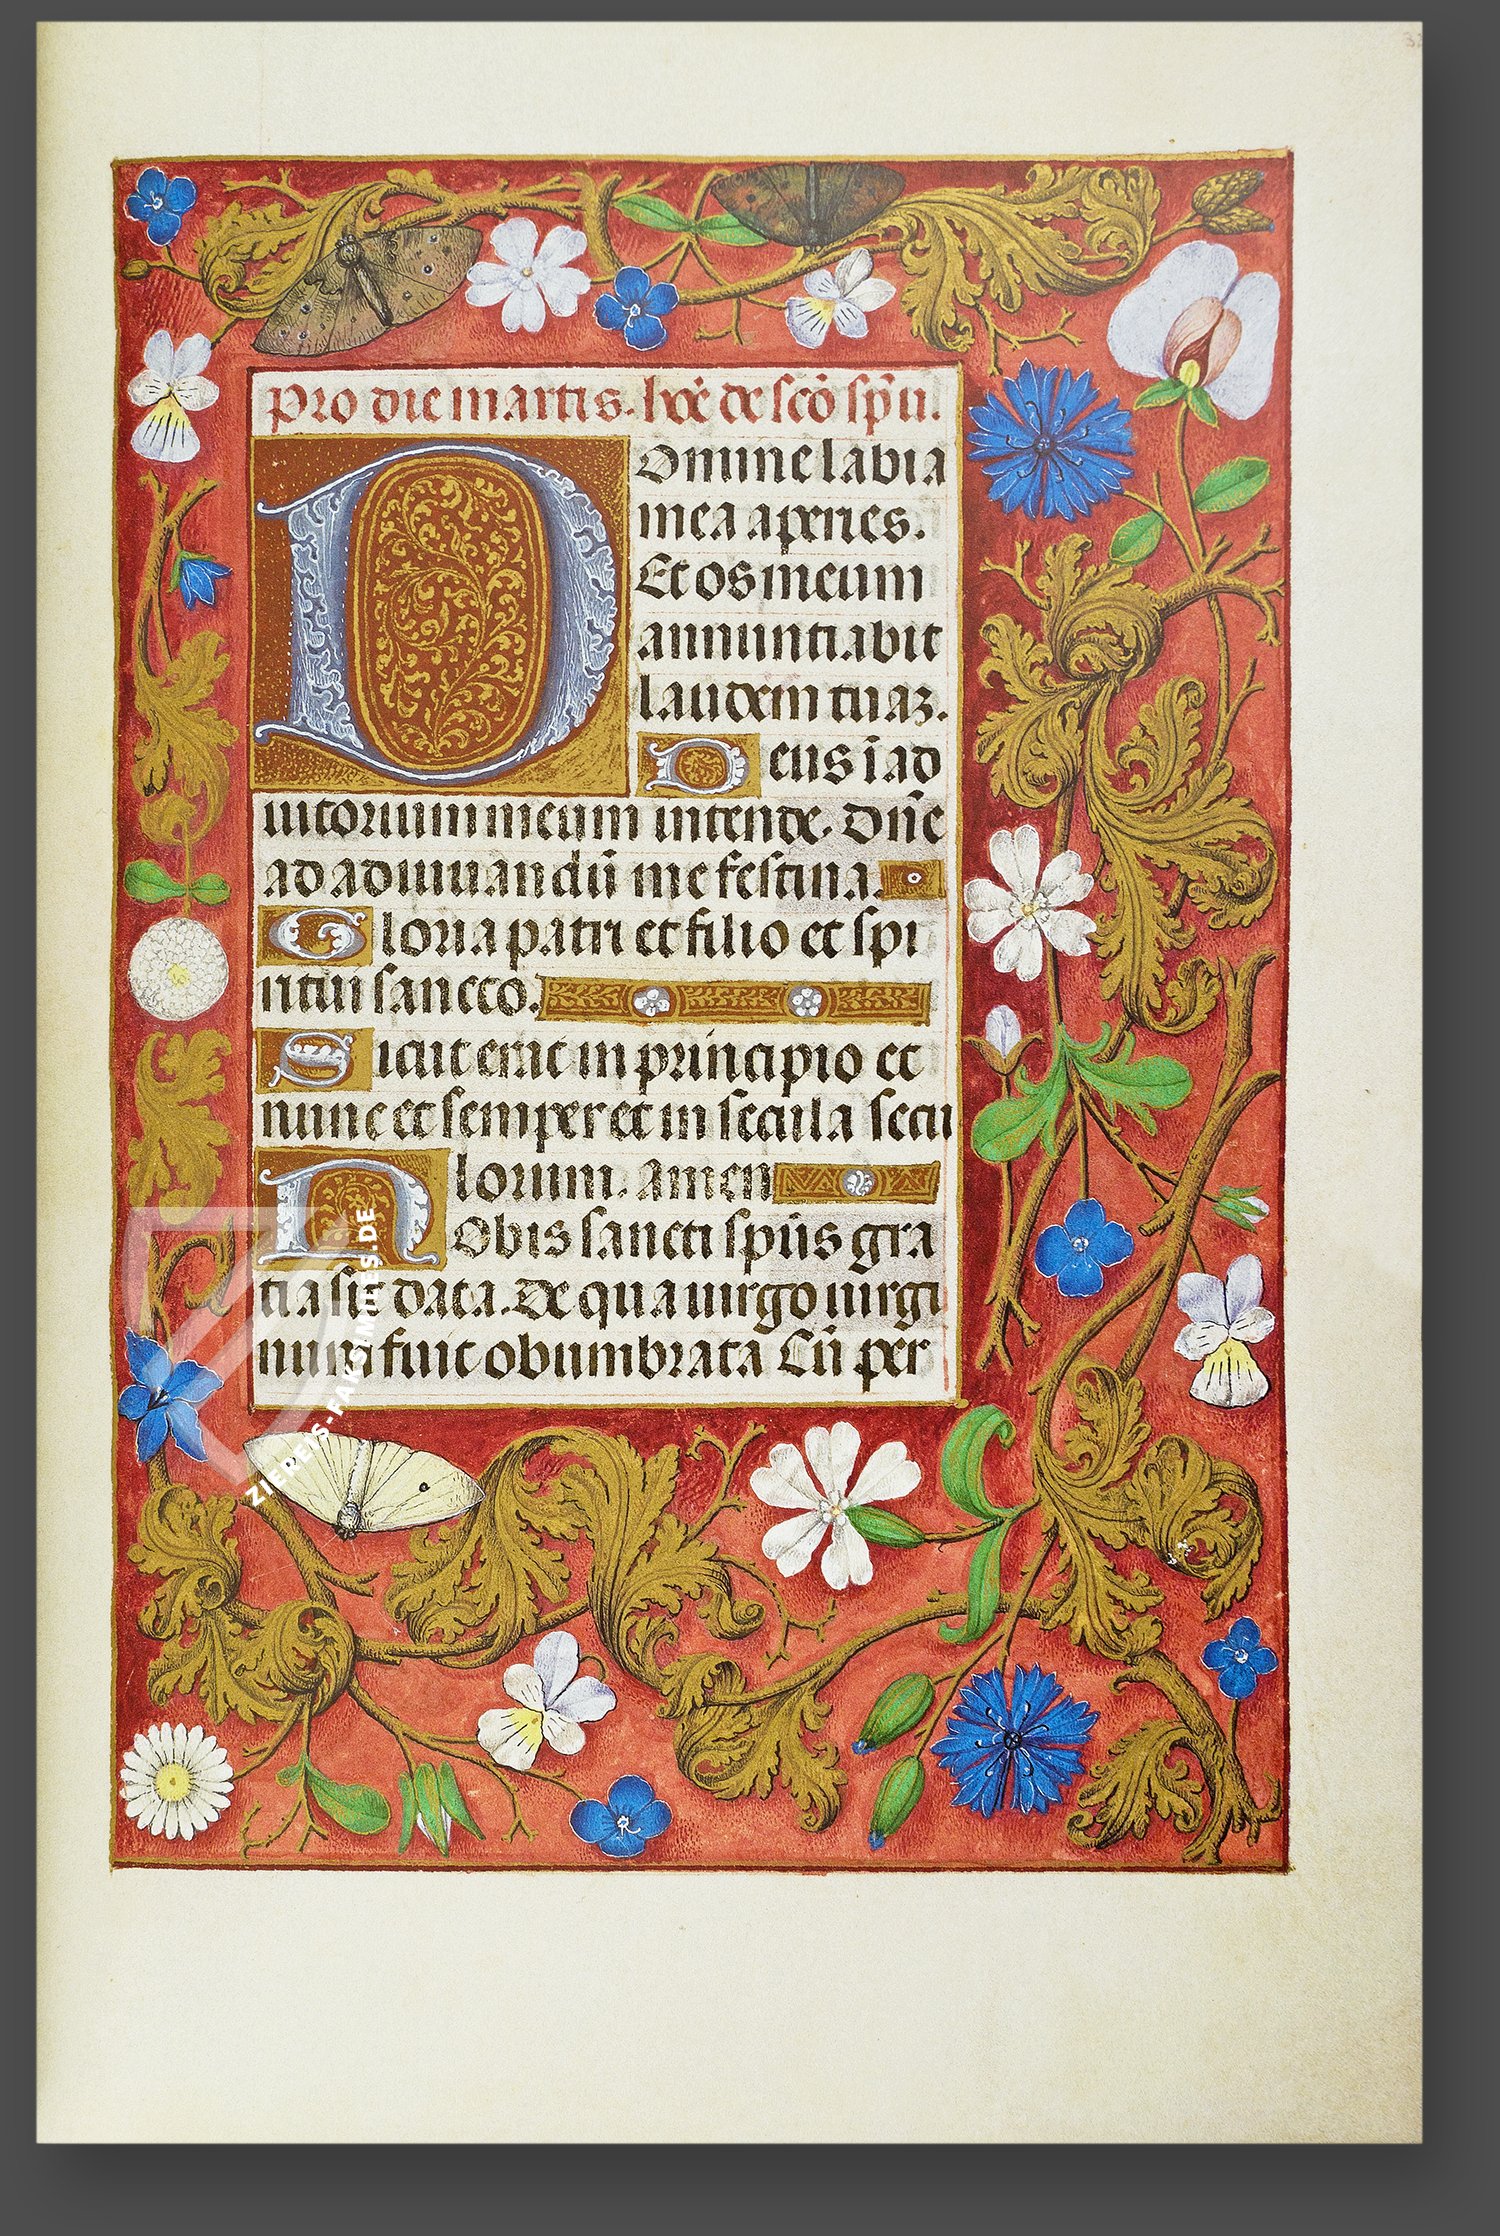 Pro die martis. hoꝛ̄ de scō spū.
Domine labia
mea aperies.
Et os meum
annuntiabit
laudem tuaꝫ.
Deus ī ad
iutorium meum intende. Dn̄e
ad adiuuandū me festina.
Gloria patri et filio et spi
ritui sancto.
Sicut erat in principio et
nunc et semper et in secula secu
lorum. amen
Nobis sancti sp̄us gra
tia sit data. De qua uirgo uirgi
num fuit obumbrata Cū per
ZIEREIS-FAKSIMILES.DE